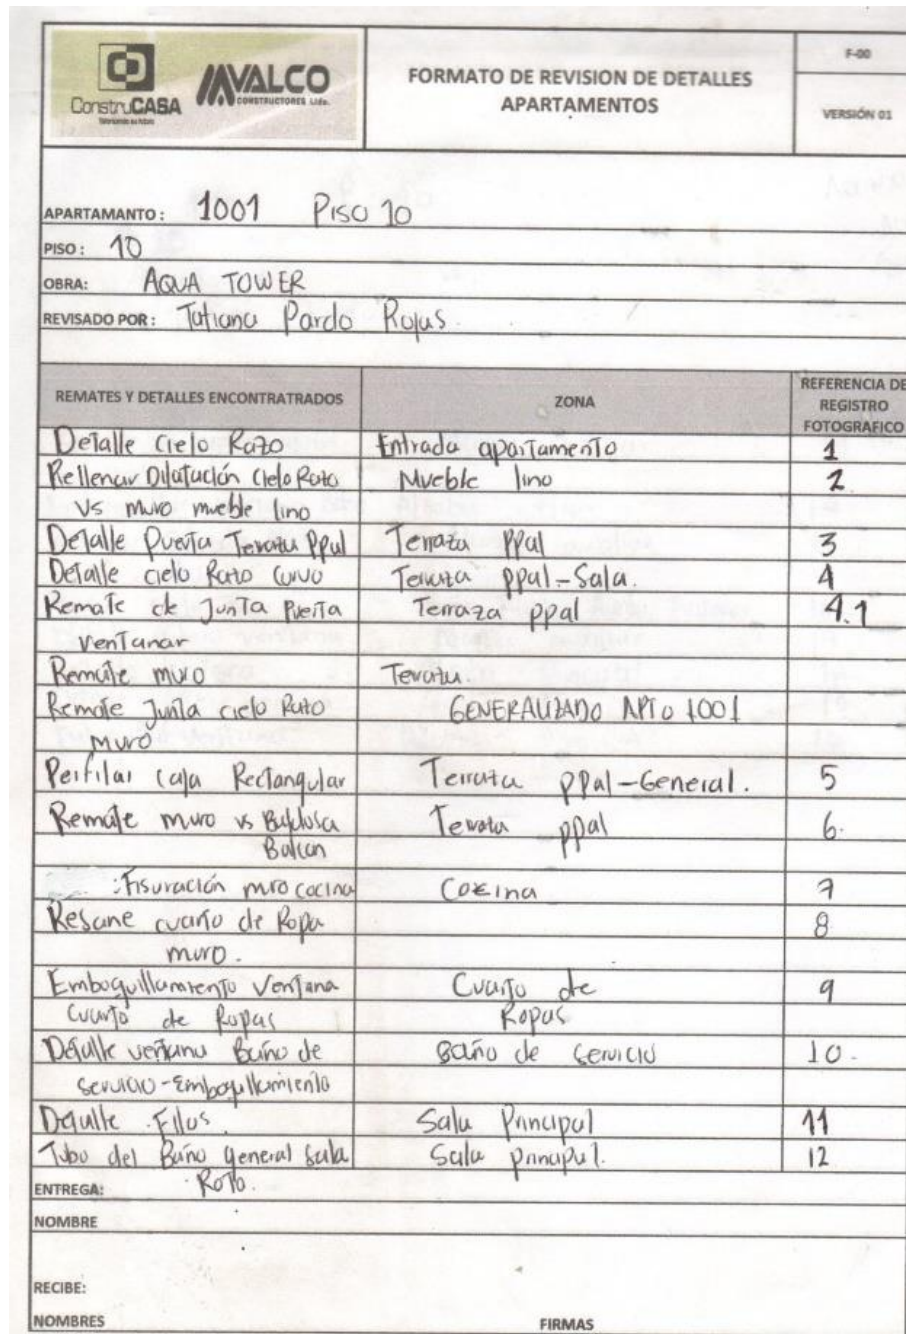 ConstruCASA
AVALCO
CONSTRUCTORES Ltda.
FORMATO DE REVISION DE DETALLES
APARTAMENTOS
F-00
VERSIÓN 01
APARTAMANTO: 1001 Piso 10
PISO: 10
OBRA: AQUA TOWER
REVISADO POR: Tatiana Pardo Rojas.
REMATES Y DETALLES ENCONTRATRADOS ZONA REFERENCIA DE REGISTRO FOTOGRAFICO
Detalle Cielo Razo Entrada apartamento 1
Rellenar Dilatación Cielo Razo Mueble lino 2
Vs muro mueble lino
Detalle Puerta Terraza Ppal Terraza PPal 3
Detalle cielo Razo curvo Terraza ppal-Sala. 4
Remate de Junta Puerta Terraza ppal 4.1
Ventanar
Remate muro Terraza.
Remate Junta cielo Razo GENERALIZADO APTO 1001
muro
Perfilar caja Rectangular Terraza PPal-General. 5
Remate muro vs Baldosa Terraza ppal 6.
Balcon
Fisuración muro cocina Cocina 7
Resane cuarto de Ropa 8
muro.
Emboquillamiento Ventana Cuarto de 9
Cuarto de Ropas Ropas
Detalle ventana Baño de Baño de Servicio 10.
Servicio-Emboquillamiento
Detalle Filos. Sala Principal 11
Tubo del Baño general Sala Sala principal. 12
ENTREGA: Roto.
NOMBRE
RECIBE:
NOMBRES FIRMAS